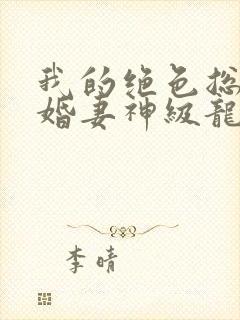 我的绝色总
婚妻神级龙
李晴